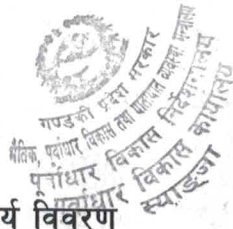 गण्डकी प्रदेश सरकार
भौतिक, पूर्वाधार विकास तथा यातायात व्यवस्था मन्त्रालय
पूर्वाधार विकास निर्देशनालय
पूर्वाधार विकास कार्यालय
स्याङ्जा
र्य विवरण